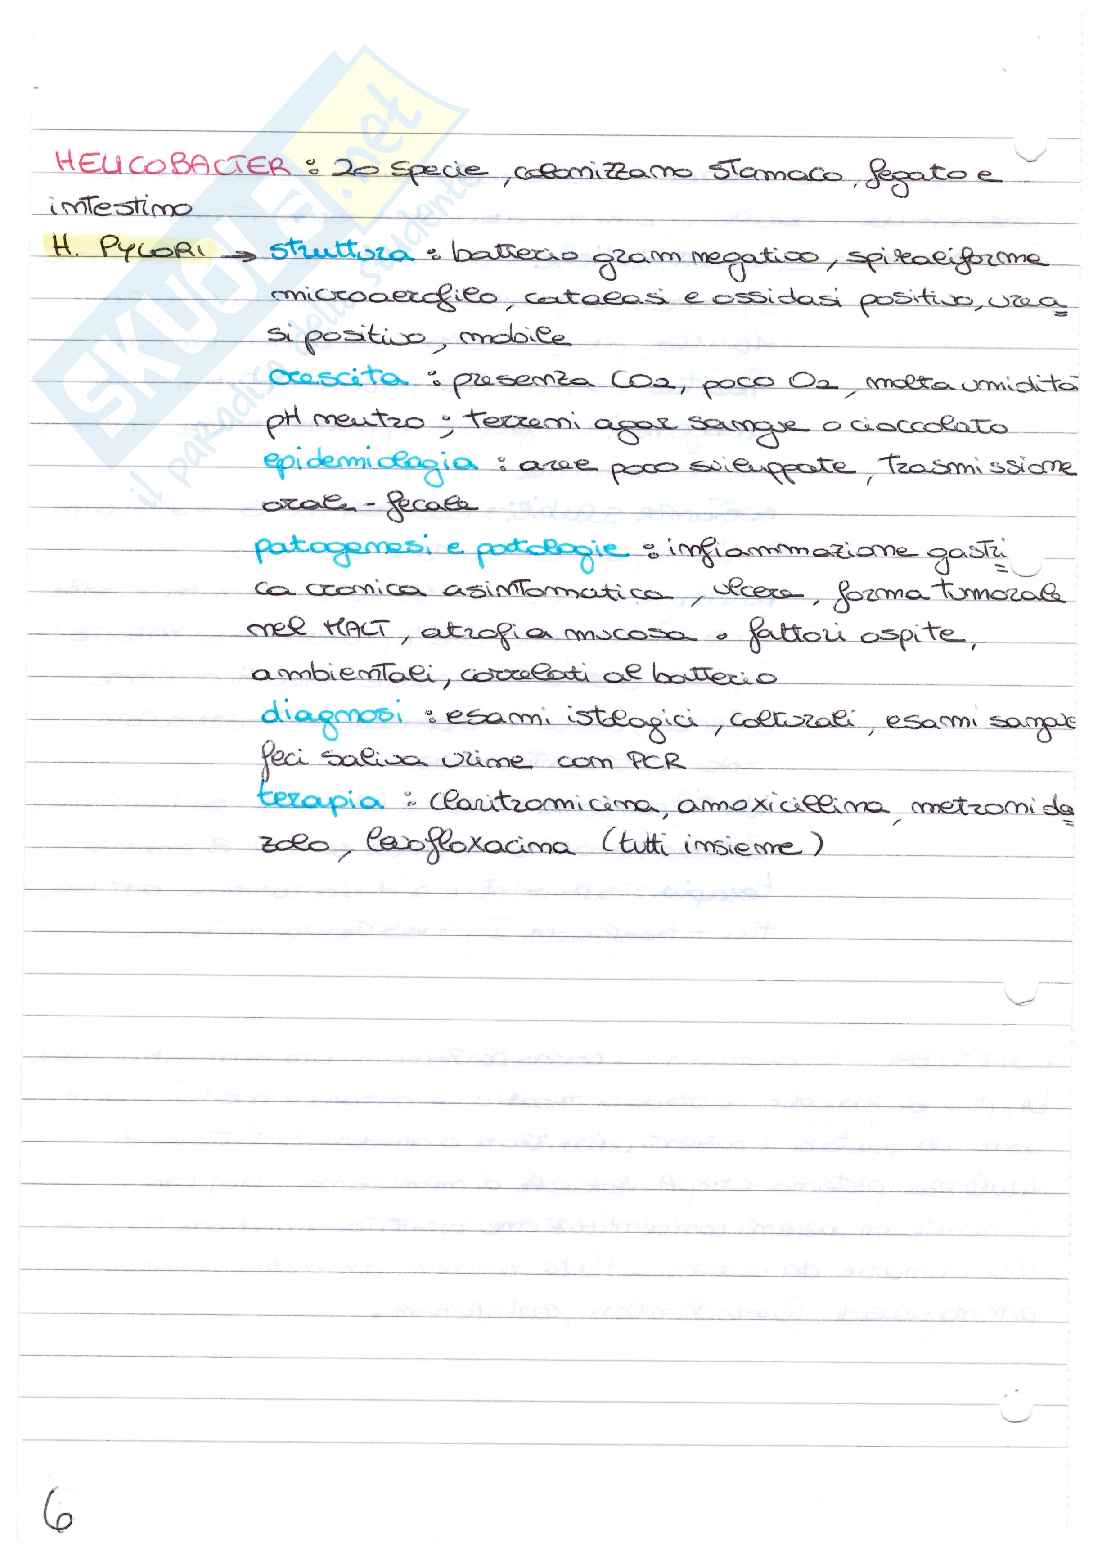 HELICOBACTER : 20 specie, colonizzano stomaco, fegato e
intestino
H. PYLORI → struttura : batterio gram negativo, spiraliforme
microaerofilo, catalasi e ossidasi positivo, urea=
si positivo, mobile
crescita : presenza CO2, poco O2, molta umidità
pH neutro ; terreni agar sangue o cioccolato
epidemiologia : aree poco sviluppate, trasmissione
orale - fecale
patogenesi e patologie : infiammazione gastri=
ca cronica asintomatica, ulcera, forma tumorale
nel MALT, atrofia mucosa . fattori ospite,
ambientali, correlati al batterio
diagnosi : esami istologici, colturali, esami sangue
feci saliva urine con PCR
terapia : claritromicina, amoxicillina, metronida=
zolo, levofloxacina (tutti insieme)
6
SKUOLA.net
il paradiso dello studente